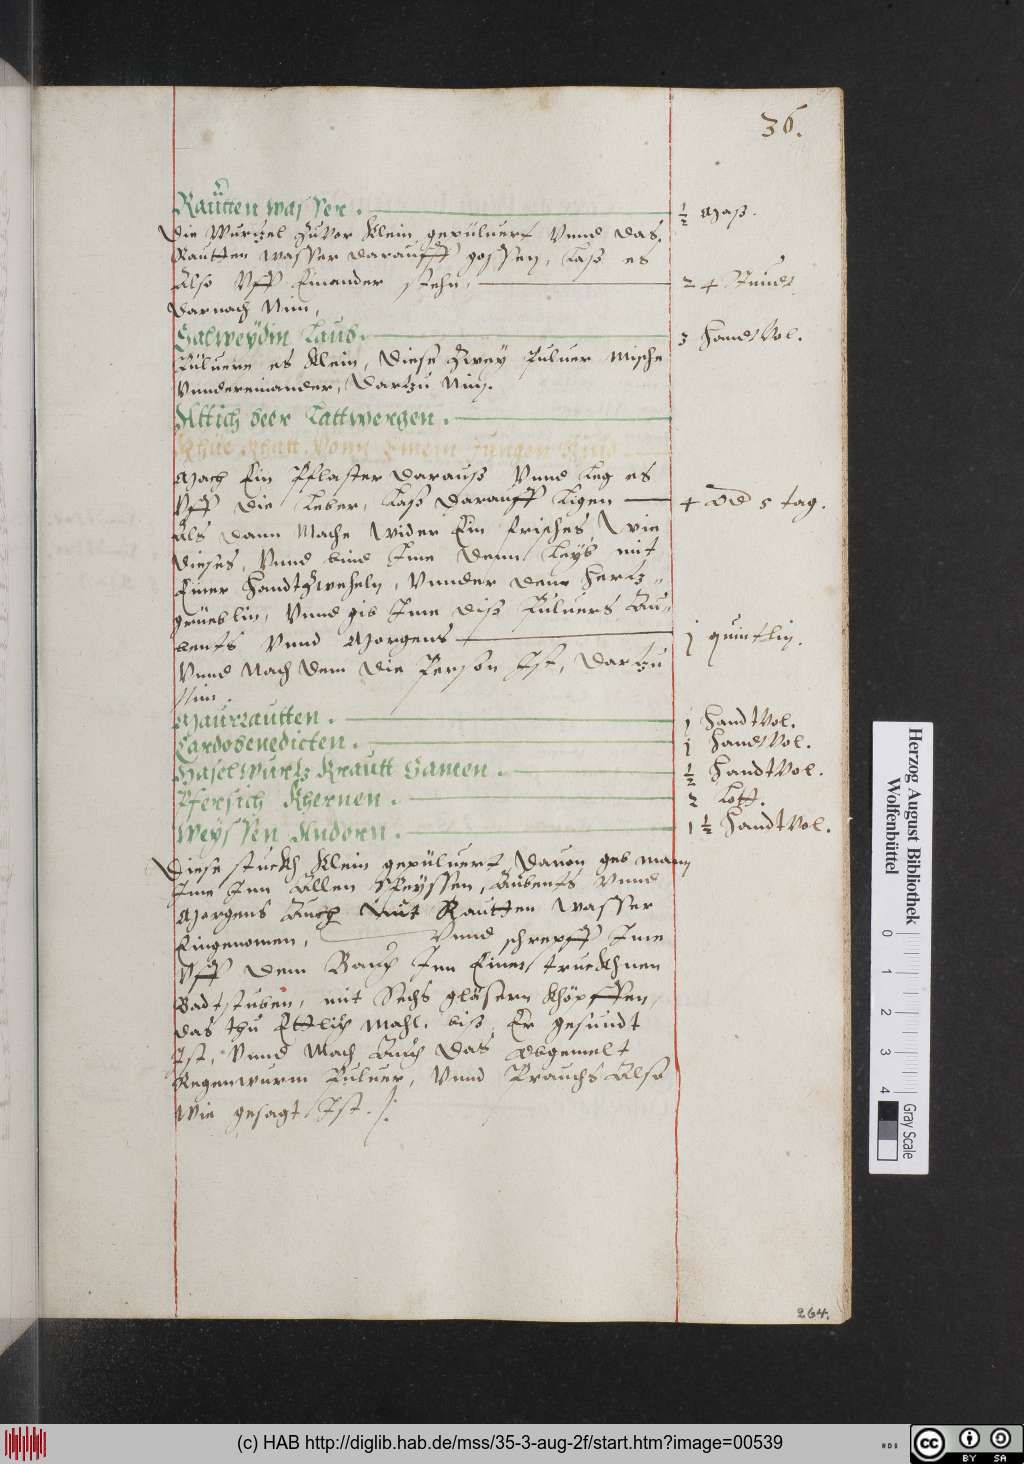 36.
Rautten wasser. ½ Maß.
Die Wurtzel Zuvor Klein gepüluert Vnnd das.
Rautten wasser darauff gossen, Laß es
Also Vff Einander stehn, 24 Stund
Darnach Nim,
Salweydin Laub. 3 Handt Vol.
Püluere es Klein, Diese Zwey Puluer Mische
Vnndereinander, Dartzu Nim.
Attich beer Lattwergen.
Khüe Khatt Vonn Einem Jungen
Mach Ein Pflaster darauß Vnnd Leg es
Vff die Leber, Laß darauff Ligen 4 od 5 tag.
Als dann Mache Wider Ein frisches, Wie
dieses, Vnnd bind Ime denn Leyb mit
Einer Handtzweheln, Vnnder dem Hertz-
grüeblin, Vnnd gib Ime diß Puluers Au-
bents Vnnd Morgens j quintlin.
Vnnd Nach dem die Person Ist, Dartzu
Nim.
Maurrautten. j Handt Vol.
Cardobenedicten. j Handt Vol.
Haselwurtz Krautt Samen. ½ Handt Vol.
Pfersich Khernen. 2 Lott.
Weyssen Andorn. 1½ Handt Vol.
Diese stuckh Klein gepüluert, Dauon geb mann
Ime Inn Allen Speyssen, Aubents Vnnd
Morgens Auch Mit Rautten Wasser
Eingenomen, Vnnd schrepff Ime
Vff dem Bauch Inn Einer truckhnen
Badtstuben, mit Sechs gläsern Khöpffen,
das thu Ettlich Mahl, biß Er gesundt
Ist, Vnnd Mach Auch das obgemelt
Regenwurm Puluer, Vnnd Brauchs Also
Wie gesagt Ist.
264.
Herzog August Bibliothek
Wolfenbüttel
0 1 2 3 4
Gray Scale
(c) HAB http://diglib.hab.de/mss/35-3-aug-2f/start.htm?image=00539
cc BY SA